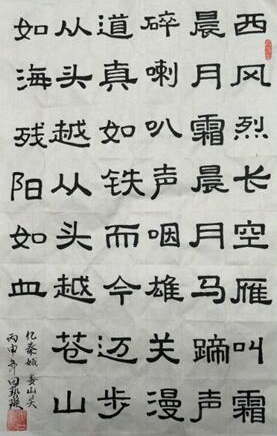 西风烈长空雁叫霜
晨月霜晨月马蹄声
碎喇叭声咽雄关漫
道真如铁而今迈步
从头越从头越苍山
如海残阳如血
忆秦娥 娄山关
丙申年